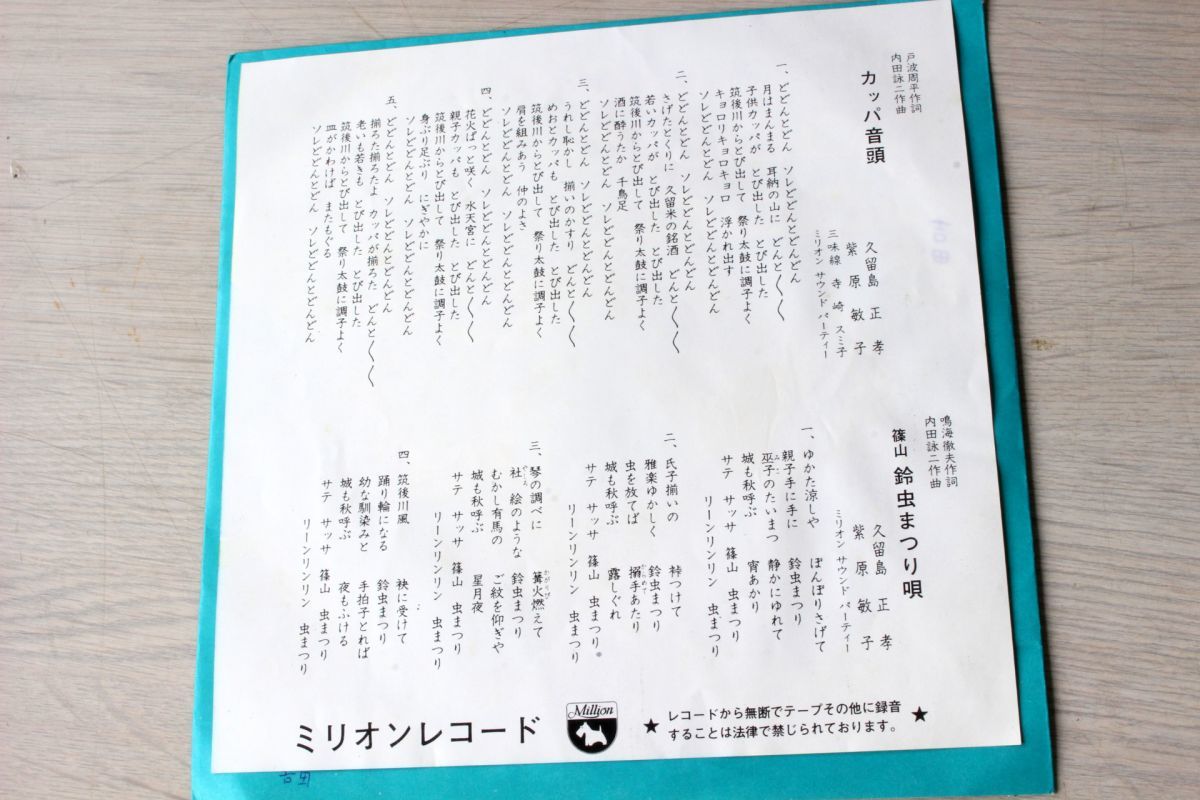 戸波周平作詞
内田詠二作曲
カッパ音頭
久留島 正孝
紫原 敏子
三味線 寺崎 スミ子
ミリオン サウンド パーティー
一、どどんとどん ソレどどんとどんどん
月はまんまる 耳納の山に どんと〱〱
子供カッパが とび出した とび出した
筑後川からとび出して 祭り太鼓に調子よく
キョロリキョロキョロ 浮かれ出す
ソレどどんとどん ソレどどんとどんどん
二、どどんとどん ソレどどんとどんどん
さげたとくりに 久留米の銘酒 どんと〱〱
若いカッパが とび出した とび出した
筑後川からとび出して 祭り太鼓に調子よく
酒に酔うたか 千鳥足
ソレどどんとどん ソレどどんとどんどん
三、どどんとどん ソレどどんとどんどん
うれし恥かし 揃いのかすり どんと〱〱
めおとカッパも とび出した とび出した
筑後川からとび出して 祭り太鼓に調子よく
肩を組みあう 仲のよさ
ソレどどんとどん ソレどどんとどんどん
四、どどんとどん ソレどどんとどんどん
花火ぱっと咲く 水天宮に どんと〱〱
親子カッパも とび出した とび出した
筑後川からとび出して 祭り太鼓に調子よく
身ぶり足ぶり にぎやかに
ソレどどんとどん ソレどどんとどんどん
五、どどんとどん ソレどどんとどんどん
揃ろた揃ろたよ カッパが揃ろた どんと〱〱
老いも若きも とび出した とび出した
筑後川からとび出して 祭り太鼓に調子よく
皿がかわけば またもぐる
ソレどどんとどん ソレどどんとどんどん
鳴海徹夫作詞
内田詠二作曲
篠山 鈴虫まつり唄
久留島 正孝
紫原 敏子
ミリオン サウンド パーティー
一、ゆかた涼しや ぼんぼりさげて
親子手に手に 鈴虫まつり
巫子のたいまつ 静かにゆれて
城も秋呼ぶ 宵あかり
サテ サッサ 篠山 虫まつり
リーンリンリン 虫まつり
二、氏子揃いの 裃つけて
雅楽ゆかしく 鈴虫まつり
虫を放てば 搦手あたり
城も秋呼ぶ 露しぐれ
サテ サッサ 篠山 虫まつり
リーンリンリン 虫まつり
三、琴の調べに 篝火燃えて
社 絵のような 鈴虫まつり
むかし有馬の ご紋を仰ぎゃ
城も秋呼ぶ 星月夜
サテ サッサ 篠山 虫まつり
リーンリンリン 虫まつり
四、筑後川風 袂に受けて
踊り輪になる 鈴虫まつり
幼な馴染みと 手拍子とれば
城も秋呼ぶ 夜もふける
サテ サッサ 篠山 虫まつり
リーンリンリン 虫まつり
ミリオンレコード
Million
★ レコードから無断でテープその他に録音
することは法律で禁じられております。 ★
吉田
吉田